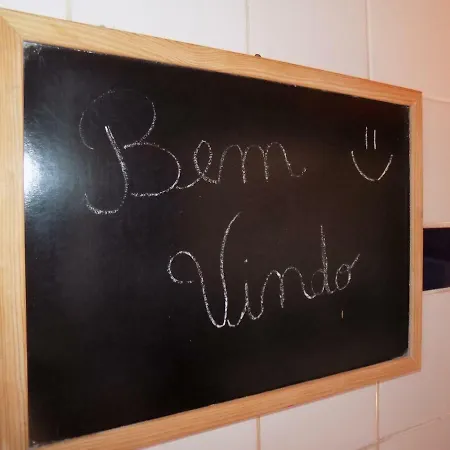 Bem
Vindo